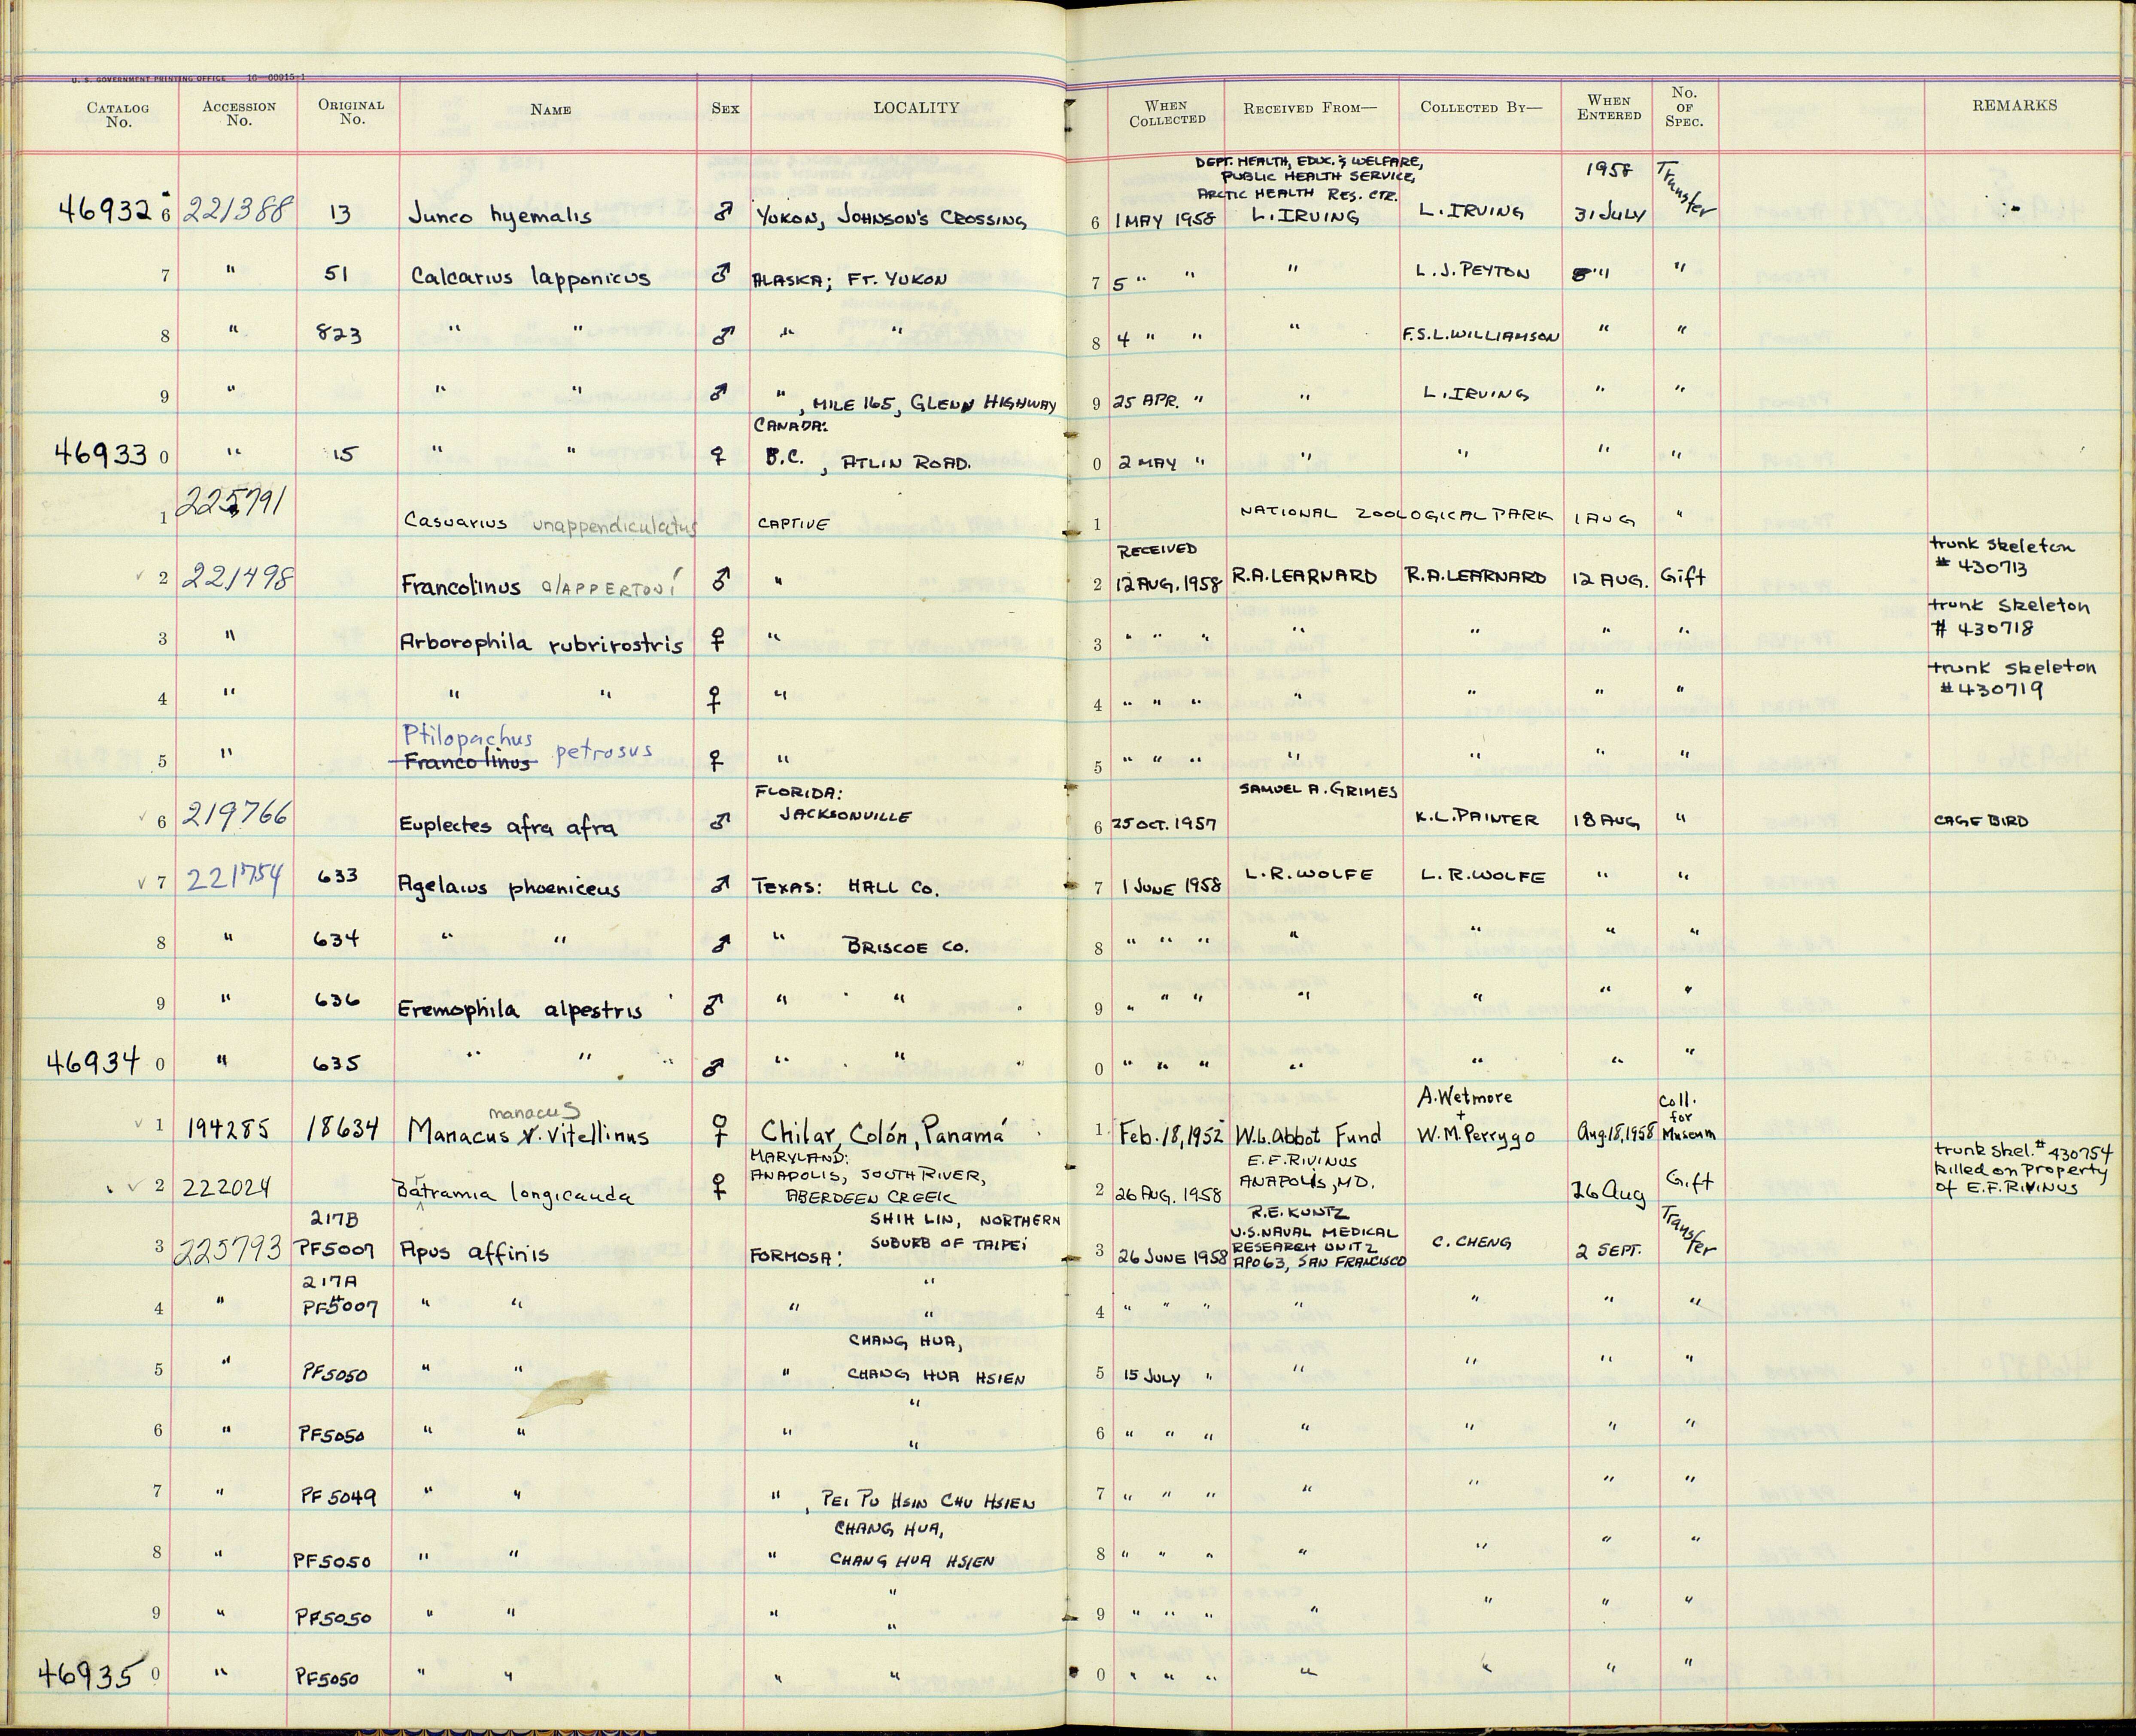 U. S. GOVERNMENT PRINTING OFFICE 16—00915-1
CATALOG No. ACCESSION No. ORIGINAL No. NAME SEX LOCALITY WHEN COLLECTED RECEIVED FROM— COLLECTED BY— WHEN ENTERED No. OF SPEC. REMARKS
DEPT. HEALTH, EDUC. & WELFARE,
PUBLIC HEALTH SERVICE,
ARCTIC HEALTH RES. CTR. 1958
46932 6 221388 13 Junco hyemalis ♂ YUKON, JOHNSON'S CROSSING 6 1 MAY 1958 L. IRVING L. IRVING 31 JULY Transfer
7 " 51 Calcarius lapponicus ♂ ALASKA; FT. YUKON 7 5 " " " L. J. PEYTON " " "
8 " 823 " " ♂ " " 8 4 " " " F.S.L. WILLIAMSON " "
9 " " " ♂ ", MILE 165, GLENN HIGHWAY 9 25 APR. " " L. IRVING " "
CANADA:
46933 0 " 15 " " ♀ B.C., ATLIN ROAD. 0 2 MAY " " " " "
1 225791 Casuarius unappendiculatus CAPTIVE 1 NATIONAL ZOOLOGICAL PARK 1 AUG "
RECEIVED trunk skeleton
2 221498 Francolinus clAPPERTONi ♂ " 2 12 AUG. 1958 R.A. LEARNARD R.A. LEARNARD 12 AUG. Gift # 430713
trunk skeleton
3 " Arborophila rubrirostris ♀ " 3 " " " " " " " # 430718
trunk skeleton
4 " " " ♀ " 4 " " " " " " " # 430719
Ptilopachus
5 " Francolinus petrosus ♀ " 5 " " " " " " "
FLORIDA: SAMUEL A. GRIMES
6 219766 Euplectes afra afra ♂ JACKSONVILLE 6 25 OCT. 1957 K.L. PAINTER 18 AUG " CAGE BIRD
7 221754 633 Agelaius phoeniceus ♂ TEXAS: HALL CO. 7 1 JUNE 1958 L.R. WOLFE L.R. WOLFE " "
8 " 634 " " ♂ " BRISCOE CO. 8 " " " " " " "
9 " 636 Eremophila alpestris ♂ " " 9 " " " " " " "
46934 0 " 635 " " " ♂ " " " 0 " " " " " " "
manacus A. Wetmore Coll.
+ for
1 194285 18634 Manacus v. vitellinus ♀ Chilar, Colón, Panamá 1 Feb. 18, 1952 W.L. Abbot Fund W.M. Perrygo Aug. 18, 1958 Museum
MARYLAND: E.F. RIVINUS trunk skel. # 430754
ANAPOLIS, SOUTH RIVER, ANAPOLIS, MD. killed on property
2 222024 Batramia longicauda ♀ ABERDEEN CREEK 2 26 AUG. 1958 26 Aug Gift of E.F. RIVINUS
217B SHIH LIN, NORTHERN R.E. KUNTZ
SUBURB OF TAIPEI U.S. NAVAL MEDICAL
RESEARCH UNIT 2
3 225793 PF5007 Apus affinis FORMOSA: 3 26 JUNE 1958 APO 63, SAN FRANCISCO C. CHENG 2 SEPT. Transfer
217A "
4 " PF5007 " " " " 4 " " " " " " "
CHANG HUA,
5 " PF5050 " " " CHANG HUA HSIEN 5 15 JULY " " " " "
"
6 " PF5050 " " " " 6 " " " " " " "
7 " PF5049 " " ", PEI PU HSIN CHU HSIEN 7 " " " " " " "
CHANG HUA,
8 " PF5050 " " " CHANG HUA HSIEN 8 " " " " " " "
"
9 " PF5050 " " " " 9 " " " " " " "
46935 0 " PF5050 " " " " 0 " " " " " " "